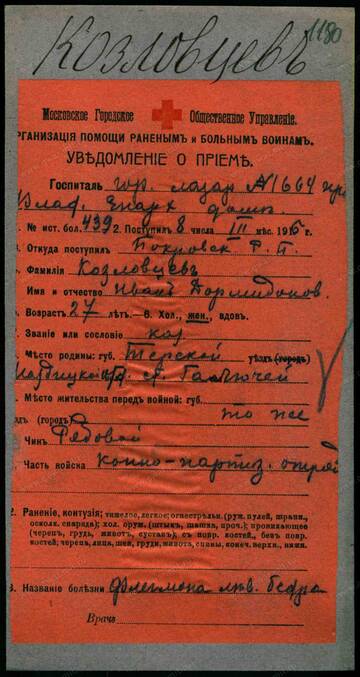 1180
Козловцевъ
Московское Городское Общественное Управленіе.
РГАНИЗАЦІЯ ПОМОЩИ РАНЕНЫМЪ и БОЛЬНЫМЪ ВОИНАМЪ.
УВѢДОМЛЕНІЕ О ПРІЕМѢ.
Госпиталь гор. лазар №1664 при
Влад. Епарх домѣ.
№ ист. бол. 4392. Поступилъ 8 числа III мѣс. 1916 г.
Откуда поступилъ Покровск Р. П.
Фамилія Козловцевъ
Имя и отчество Иванъ Дормидонов.
Возрастъ 27 лѣтъ.—6. Хол., жен., вдов.
Званіе или сословіе каз
Мѣсто родины: губ. Терской уѣздъ (городъ)
ст. Галюгаей
Мѣсто жительства передъ войной: губ.
дъ (городъ) то же
Чинъ Рядовой
Часть войска конно-партиз. отряд
2. Раненіе, контузія: тяжелое, легкое; огнестрѣльн. (руж. пулей, шрапн.,
осколк. снаряда); хол. оруж. (штыкъ, шашка, проч.); проникающее
(черепъ, грудь, животъ, суставъ); съ повр. костей, безъ повр.
костей; черепъ, лица, шеи, груди, живота, спины, конеч. верхн., нижн.
3. Названіе болѣзни флегмона лѣв. бедра
Врачъ